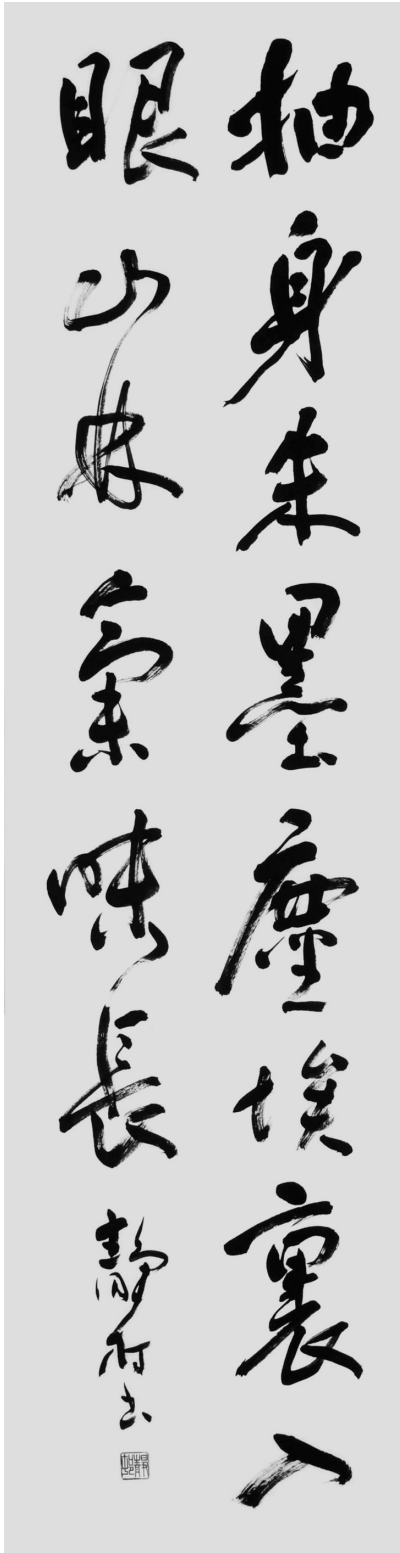 抽身朱墨塵埃裏入
眼山林氣味長
靜村書